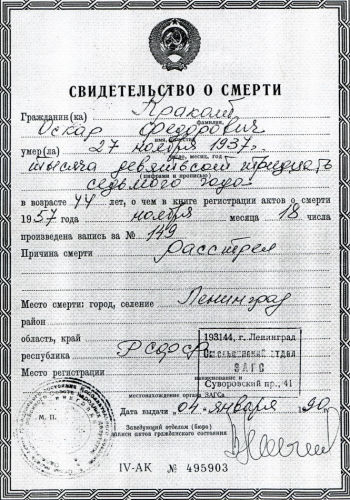 СВИДЕТЕЛЬСТВО О СМЕРТИ
Гражданин(ка) Краколт
фамилия,
Оскар Федорович
имя, отчество
умер(ла) 27 ноября 1937г.
число, месяц, год
тысяча девятьсот тридцать
(цифрами и прописью)
седьмого года
в возрасте 44 лет, о чем в книге регистрации актов о смерти
1957 года ноября месяца 18 числа
произведена запись за № 149
Причина смерти расстрел
Место смерти: город, селение Ленинград
район
область, край
республика РСФСР
193144, г. Ленинград
Смольнинский отдел
ЗАГС
Суворовский пр., 41
Место регистрации
наименование и
местонахождение органа ЗАГСа
Дата выдачи 04 января 1990 г.
М. П.
Заведующий отделом (бюро)
записи актов гражданского состояния
IV-АК № 495903